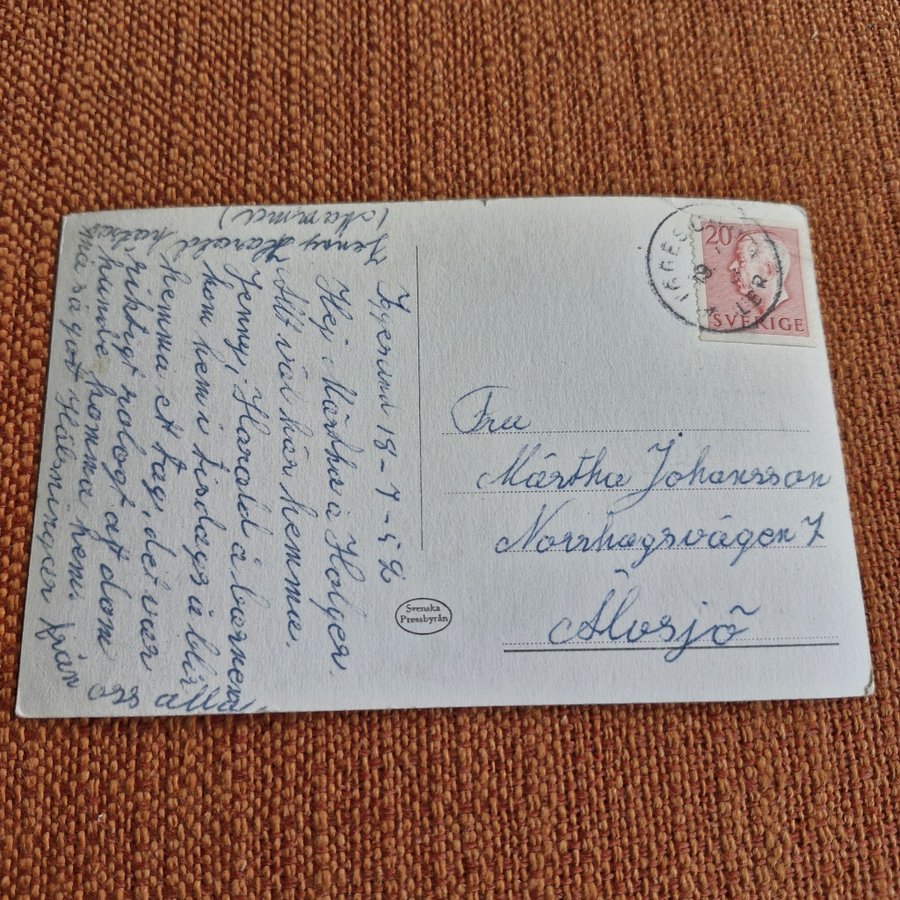 18-7-52
Hej Märtha å Holger.
Allt väl här hemma.
Jenny, Harald å barnen
kom hem i tisdags å blir
hemma ett tag, det var
riktigt roligt att dom
kunde komma hem.
må så gott Hälsningar från
oss alla
Jenny Harald
(Mamma)
20
SVERIGE
Fru
Märtha Johansson
Norrhagsvägen 7
Älvsjö
Svenska
Pressbyrån